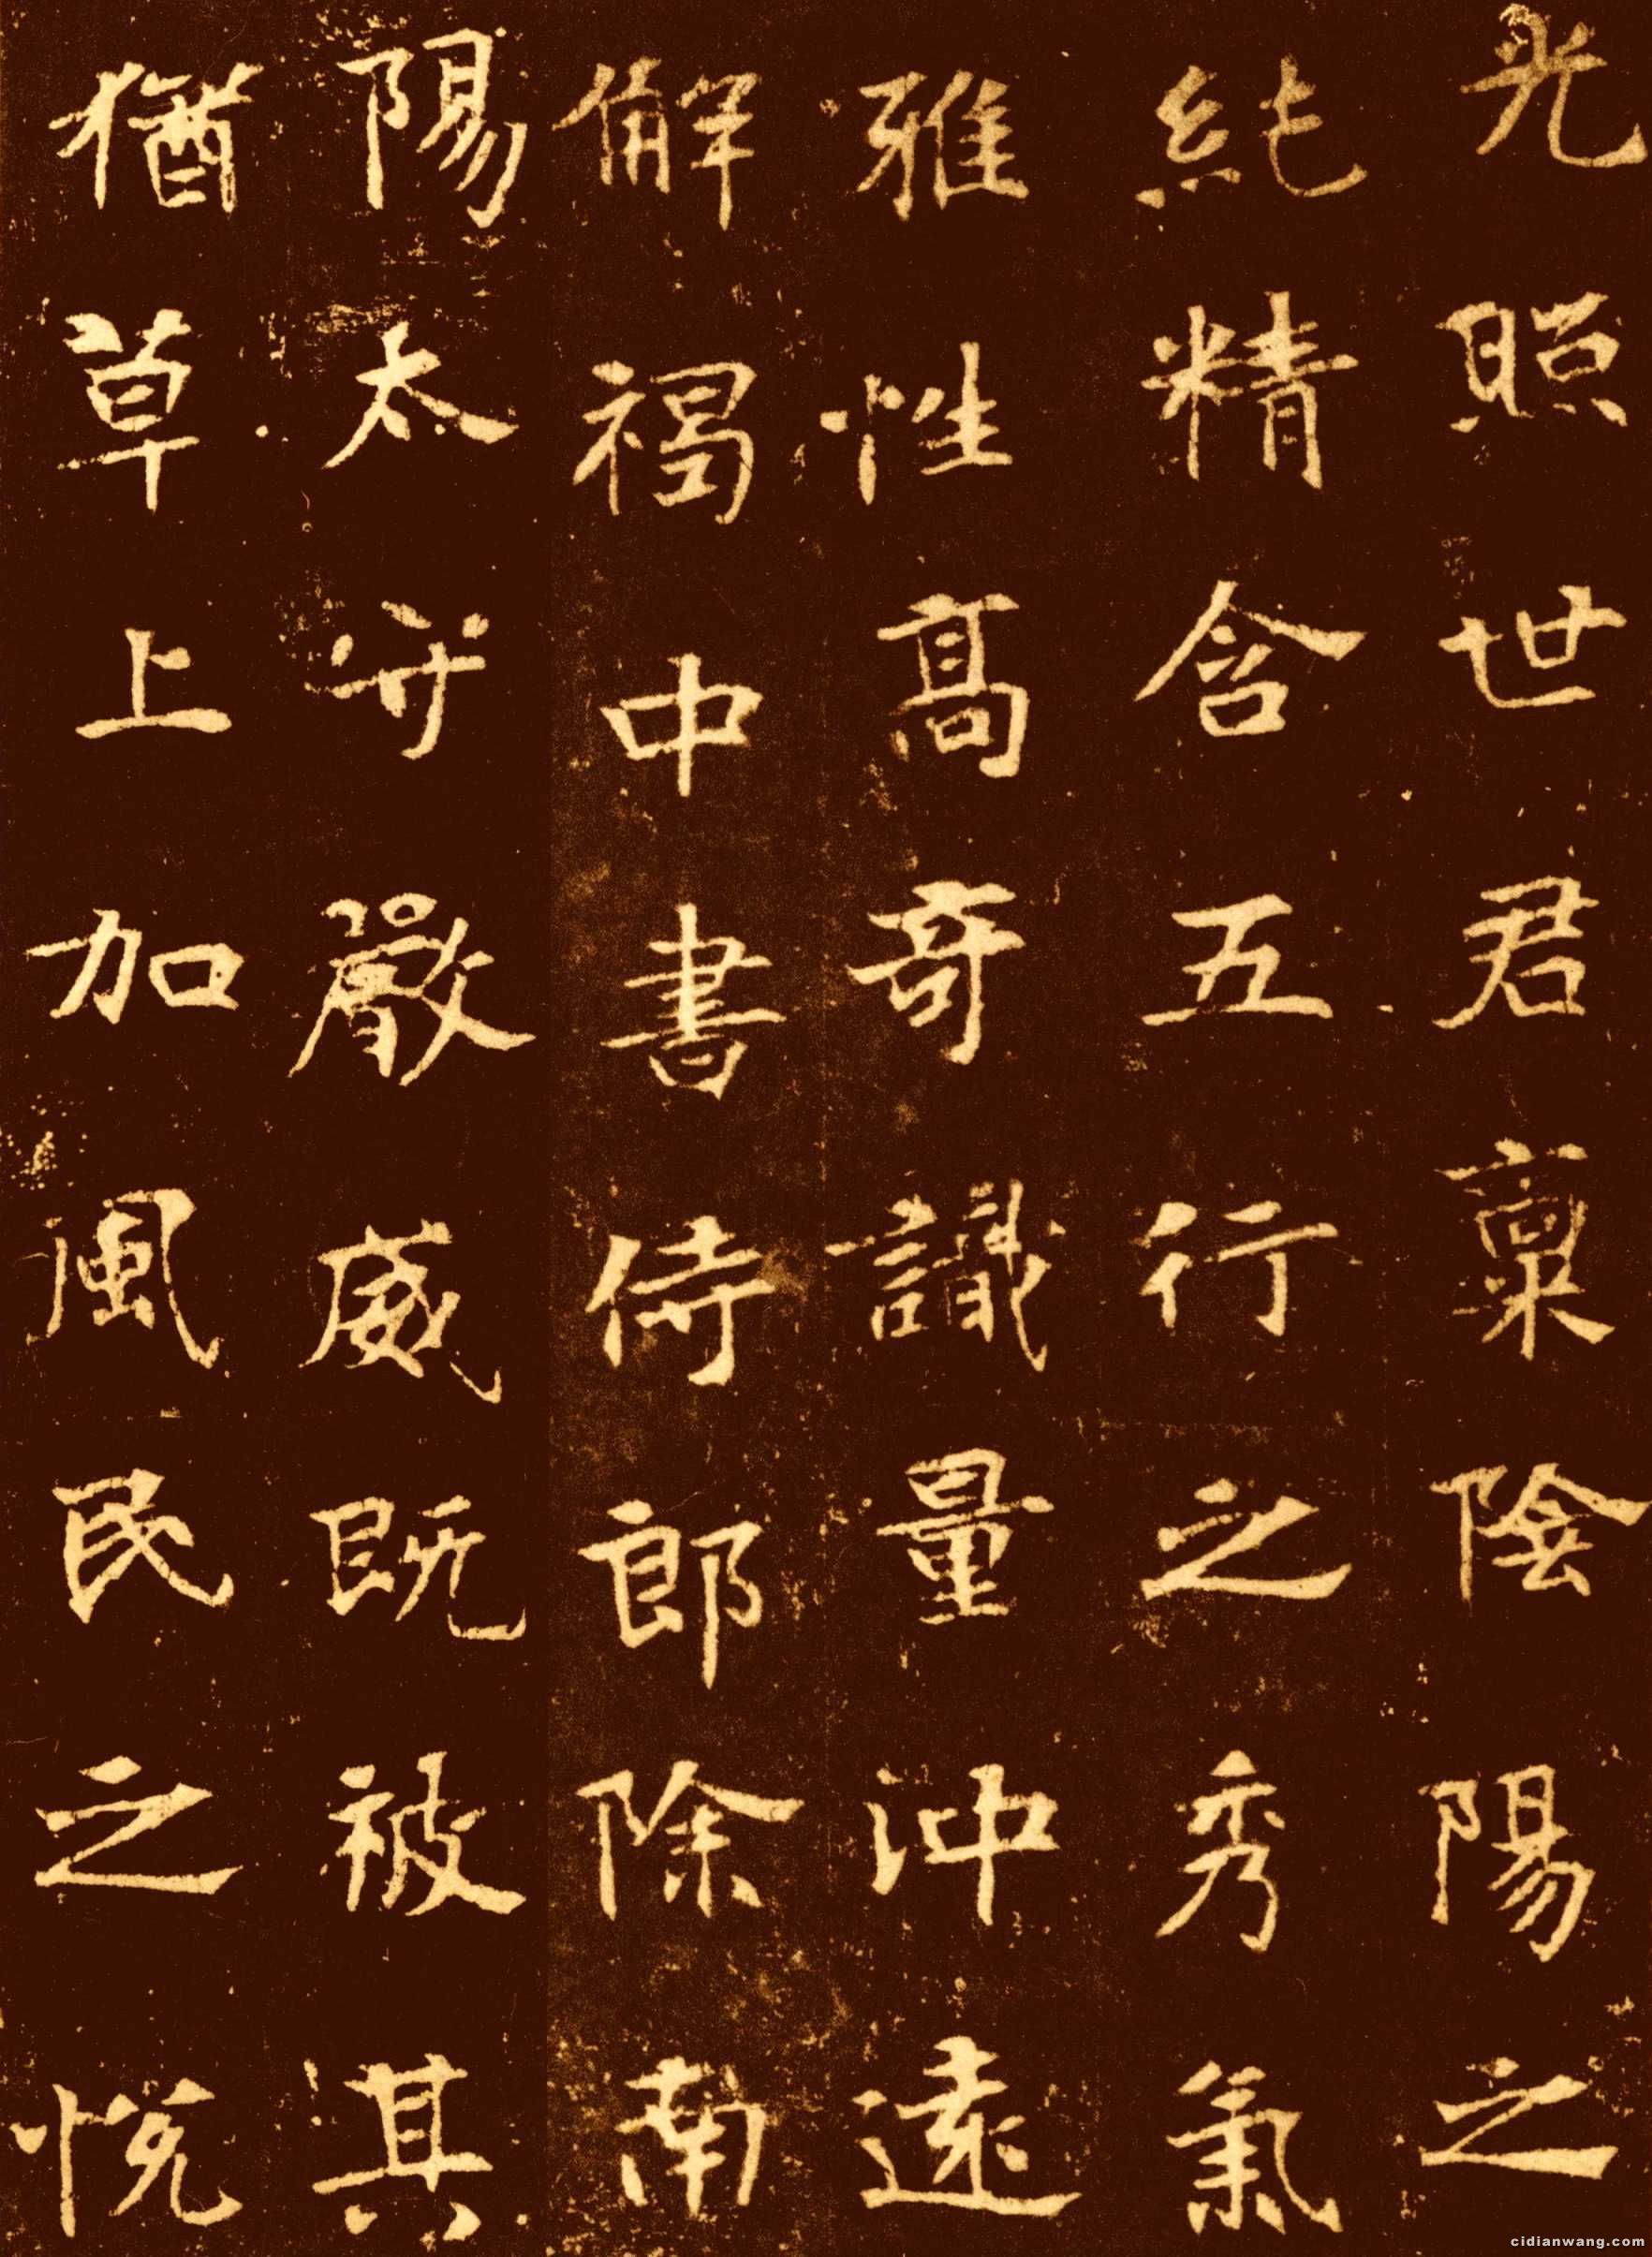 光照世君稟陰陽之
純精含五行之秀氣
雅性高奇識量沖遠
解褐中書侍郎除南
陽太守嚴威既被其
猶草上加風民之悅
cidianwang.com